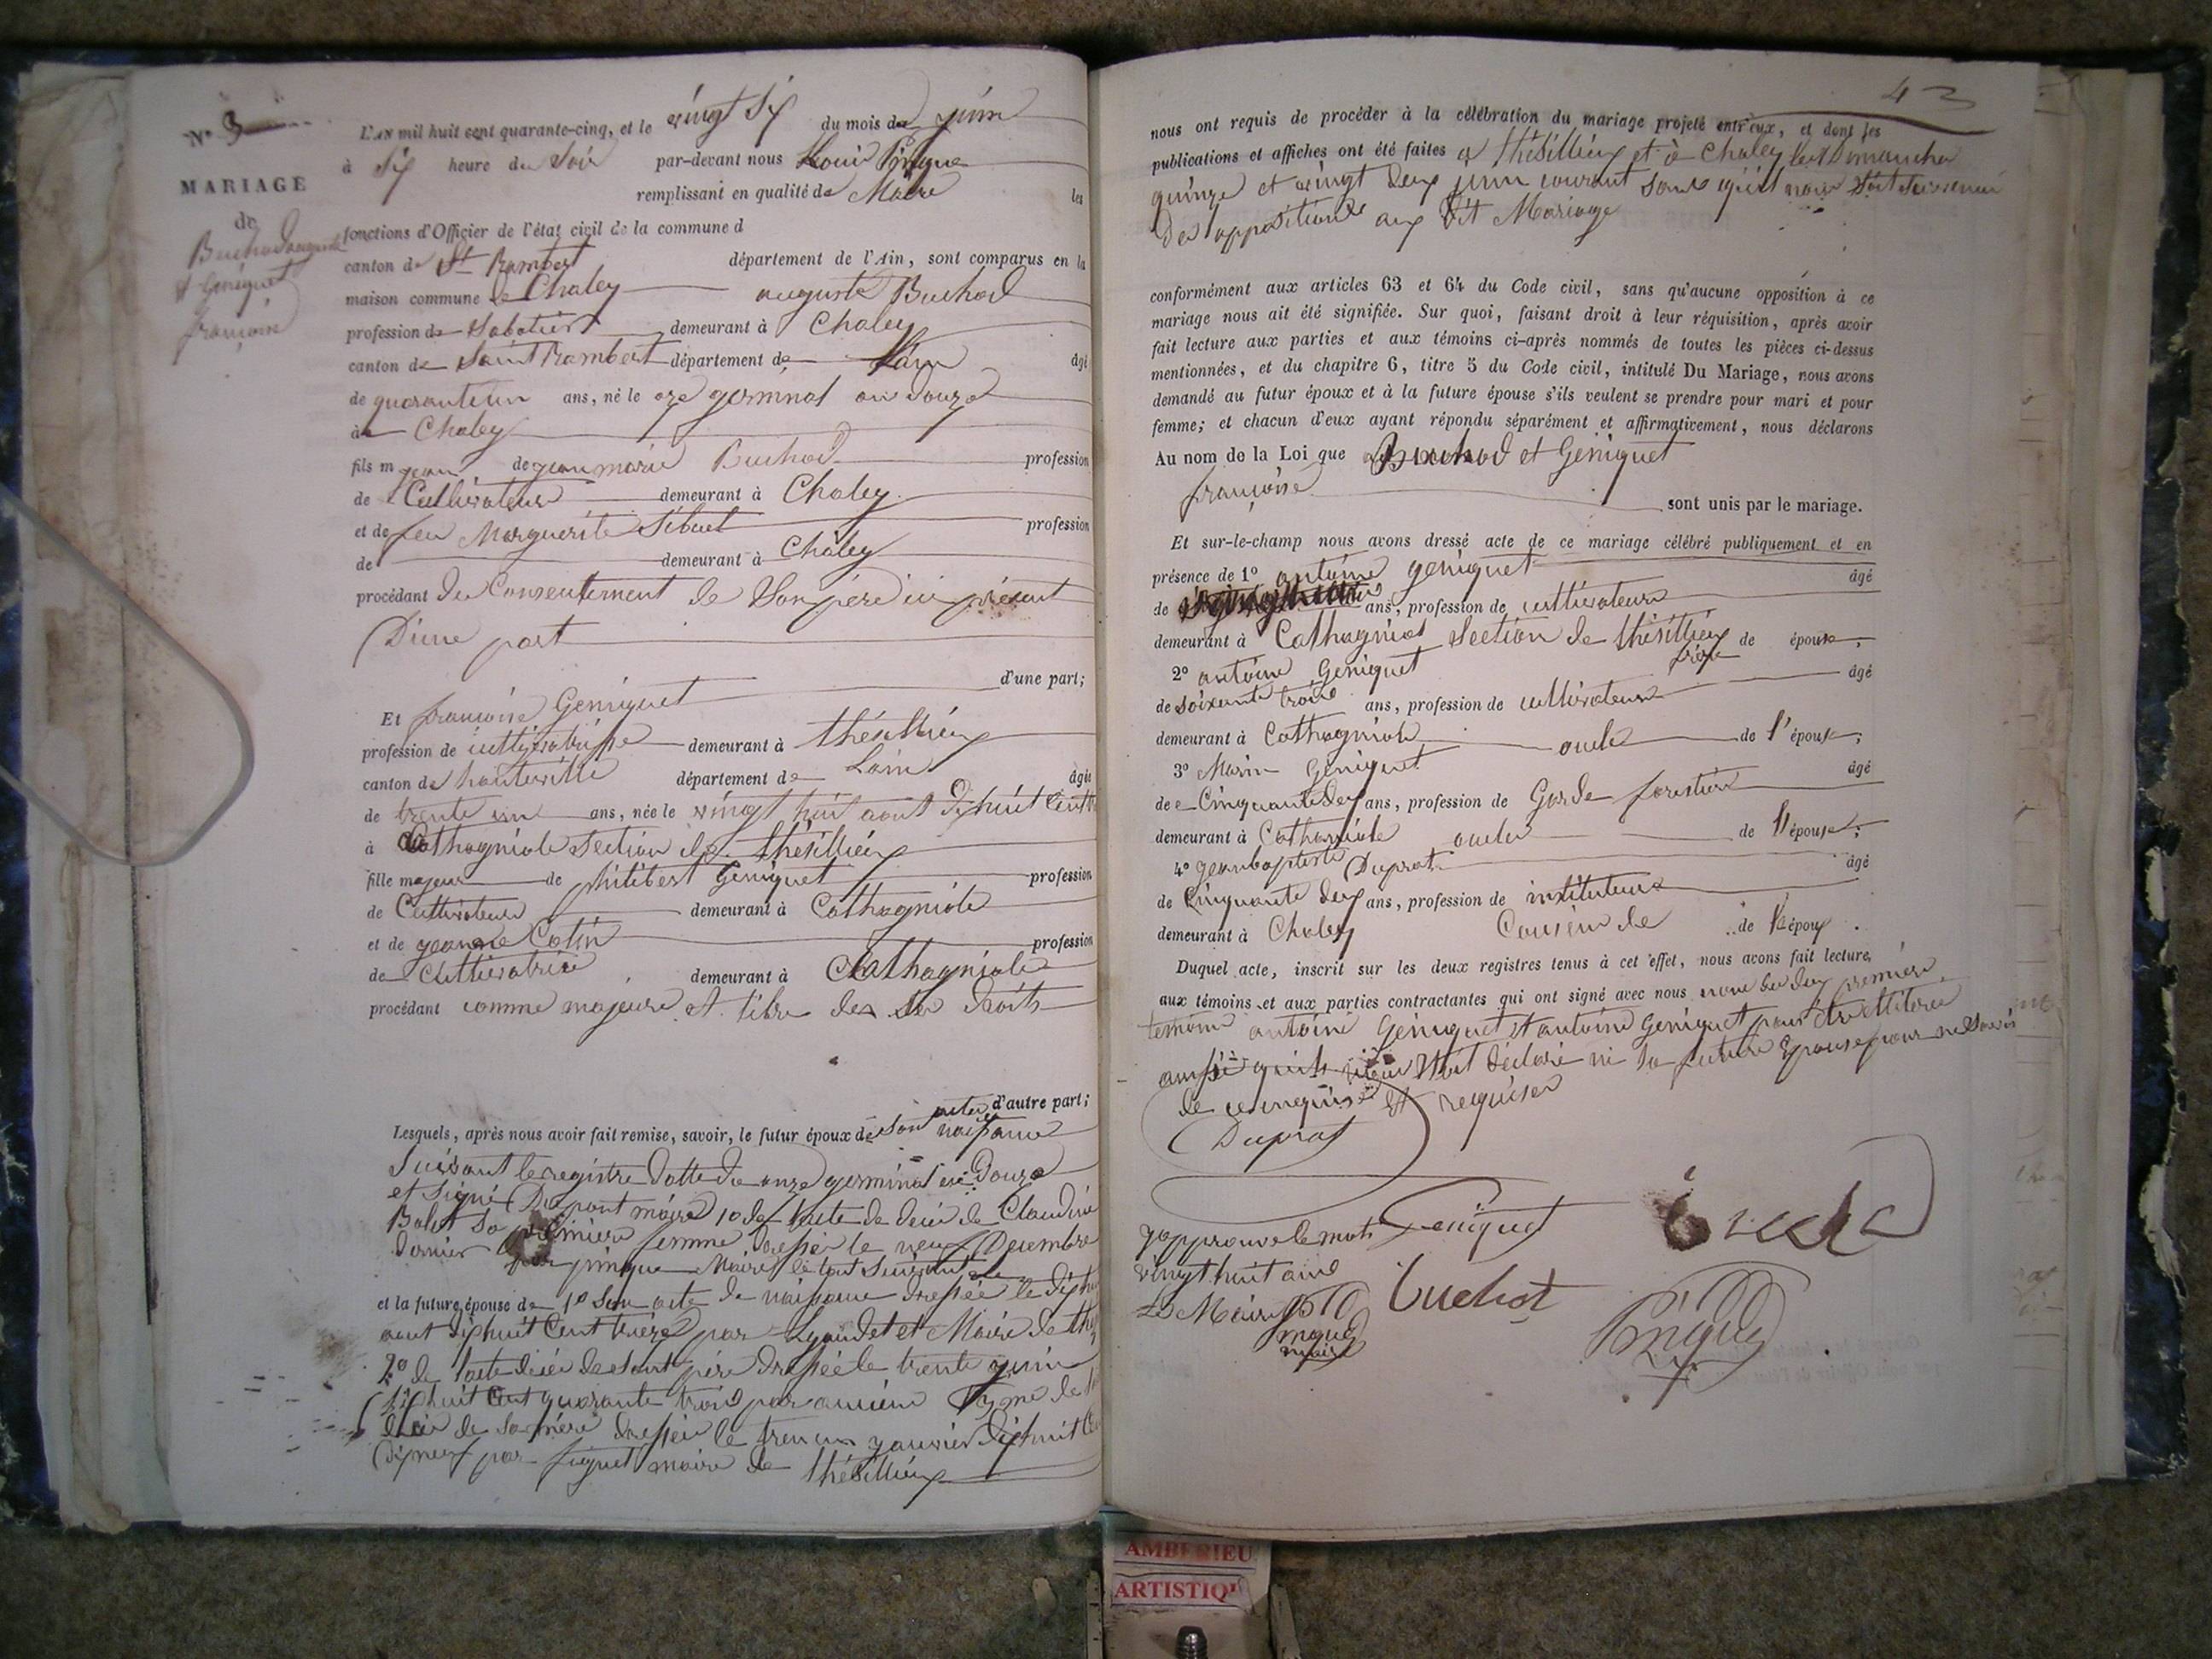 N° 3
MARIAGE
de
Buchod auguste
et Geniquet
françoise
L'AN mil huit cent quarante-cinq, et le vingt six du mois de juin
à six heure du Soir par-devant nous Louis Pingue
remplissant en qualité de Maire les
fonctions d'Officier de l'état civil de la commune d
canton de St Rambert département de l'Ain, sont comparus en la
maison commune de Chaley auguste Buchod
profession de Sabotier demeurant à Chaley
canton de Saint Rambert département de Lain âgé
de quarante un ans, né le germinal an douze
à Chaley
fils m de jean marie Buchod profession
de Cultivateur demeurant à Chaley
et de feu Marguerite Sibuet profession
de demeurant à Chaley
procédant du Consentement de Son père ici présent
D'une part
d'une part;
Et françoise Geniquet
profession de cultivatrisse demeurant à thésillieux
canton de hauteville département de Lain âgée
de trente un ans, née le vingt huit aout dix huit Cent
à Cathagniole Section de thésillieux
fille majeur de philibert Geniquet profession
de Cultivateur demeurant à Cathagniole
et de jeanne Colin profession
de Cultivatrice demeurant à Cathagniole
procédant comme majeure et libre des ses droits
d'autre part;
Lesquels, après nous avoir fait remise, savoir, le futur époux de sont acte naissance
Suivant le registre datte du onze germinal an Douze
et Signé Dupont maire de lacte de décès de Claudine
Bolet Sa première femme dressée le neuf Décembre
dernier par pingue Maire le tout Suivant
et la future épouse de 1° Son acte de naissance dressée le
aout dix huit Cent treize par Maire de
2° de lacte décés de sont père dressée le trente juin
dix huit Cent quarante trois par
décès de Sa mère dressée le janvier dix huit
Dix neuf par maire de thésillieux
43
nous ont requis de procéder à la célébration du mariage projeté entr'eux, et dont les
publications et affiches ont été faites a thésillieux et à Chaley les Dimanche
quinze et vingt deux juin courant sans qu'il nous Soit
des oppositions aux dit Mariage
conformément aux articles 63 et 64 du Code civil, sans qu'aucune opposition à ce
mariage nous ait été signifiée. Sur quoi, faisant droit à leur réquisition, après avoir
fait lecture aux parties et aux témoins ci-après nommés de toutes les pièces ci-dessus
mentionnées, et du chapitre 6, titre 5 du Code civil, intitulé Du Mariage, nous avons
demandé au futur époux et à la future épouse s'ils veulent se prendre pour mari et pour
femme; et chacun d'eux ayant répondu séparément et affirmativement, nous déclarons
Au nom de la Loi que Buchod et Geniquet
françoise
sont unis par le mariage.
Et sur-le-champ nous avons dressé acte de ce mariage célébré publiquement et en
présence de 1° antoine geniquet âgé
de ans, profession de cultivateur
demeurant à Cathagniol Section de thésillieux frère de épouse;
2° antoine Geniquet âgé
de soixante trois ans, profession de cultivateur
demeurant à Cathagniole oncle de l'épouse;
3° Marin Geniquet âgé
de Cinquante deux ans, profession de Garde forestier
demeurant à Cathagniole oncle de l'épouse;
4° jean baptiste Duprat âgé
de Cinquante deux ans, profession de instituteur
demeurant à Chaley Cousin de de l'époux.
Duquel acte, inscrit sur les deux registres tenus à cet effet, nous avons fait lecture,
aux témoins et aux parties contractantes qui ont signé avec nous non les deux premiers
temoins antoine Geniquet et antoine Geniquet pour être illitérés
ainsi qu'ils nous lont déclaré ni la future Epouse pour ne savoir
de ce enquise et requise
Duprat
japprouve le mots Geniquet
vingt huit
Le Maire Buchod
Pingue
maire
Pingue
AMBERIEU
ARTISTIQU